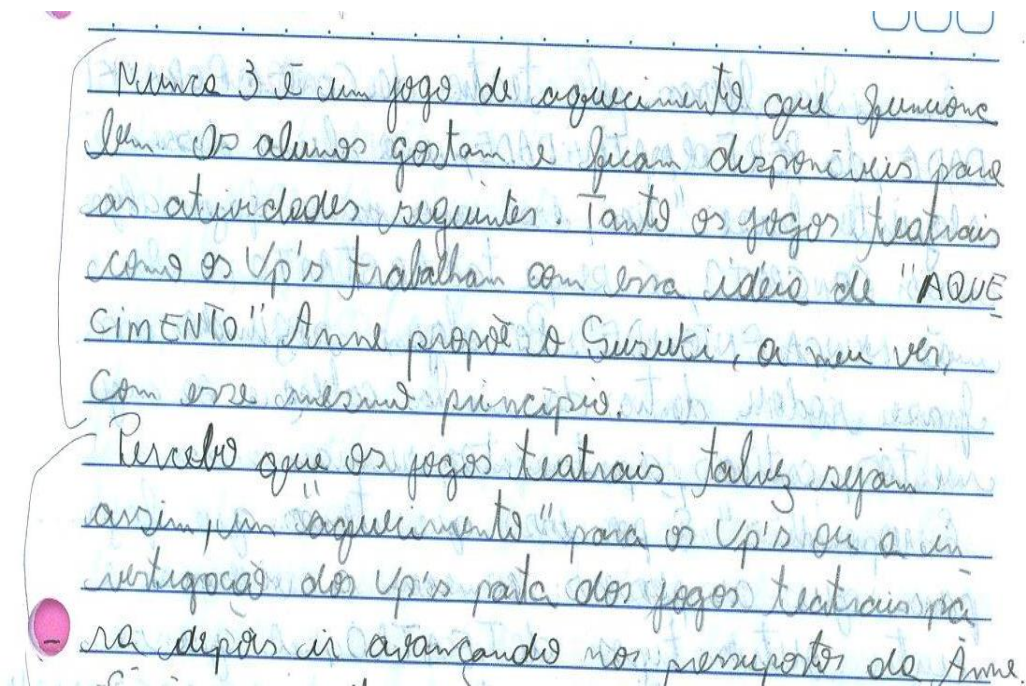 Nunca 3 é um jogo de aquecimento que funciona
bem Os alunos gostam e ficam disponíveis para
as atividades seguintes. Tanto os jogos teatrais
como os Vp's trabalham com essa idéia de "AQUE
CIMENTO" Anne propõe o Suzuki, a meu ver,
com esse mesmo princípio.
Percebo que os jogos teatrais talvez sejam
assim, um "aquecimento" para os Vp's ou a in
vestigação dos Vp's parta dos jogos teatrais pa
ra depois ir avançando nos pressupostos da Anne.